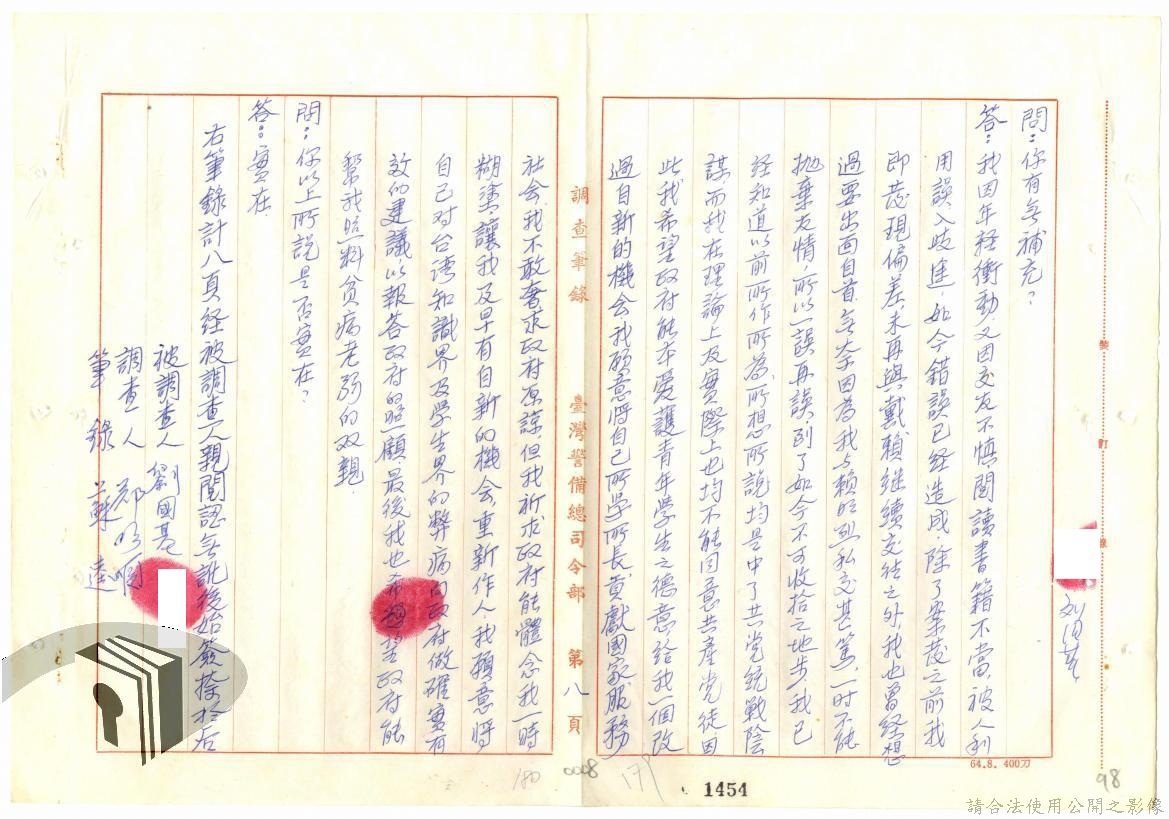 問：你有無補充？
答：我因年輕衝動，又因交友不慎，閱讀書籍不當，被人利
用誤入歧途，如今錯誤已經造成，除了案發之前我
即發現偏差未再與戴賴繼續交往之外，我也曾經想
過要出面自首，無奈因為我与賴明烈私交甚篤，一时不能
拋棄友情，所以一誤再誤，到了如今不可收拾之地步，我已
經知道以前所作所為，所想所說均是中了共党統戰陰
謀，而我在理論上及實際上也均不能同意共產党徒，因
此我希望政府能本愛護青年學生之德意給我一個改
過自新的機会，我願意將自己所學所長，貢獻國家，服務
社会，我不敢奢求政府原諒，但我祈求政府能體念我一時
糊塗，讓我及早有自新的機会，重新作人，我願意將
自己对台湾知識界及学生界的弊病向政府做確實有
效的建議，以報答政府的照顧，最後我也希望政府能
幫我照料貧病老弱的双親
問：你以上所說是否實在？
答：實在
右筆錄計八頁經被調查人親閱認無訛後始簽捺於后
被調查人 劉國基
調查人 鄭
筆錄 蘇
調查筆錄 臺灣警備總司令部 第八頁
裝 訂 線
64.8. 400刀
180 0008 179 1454 98
請合法使用公開之影像